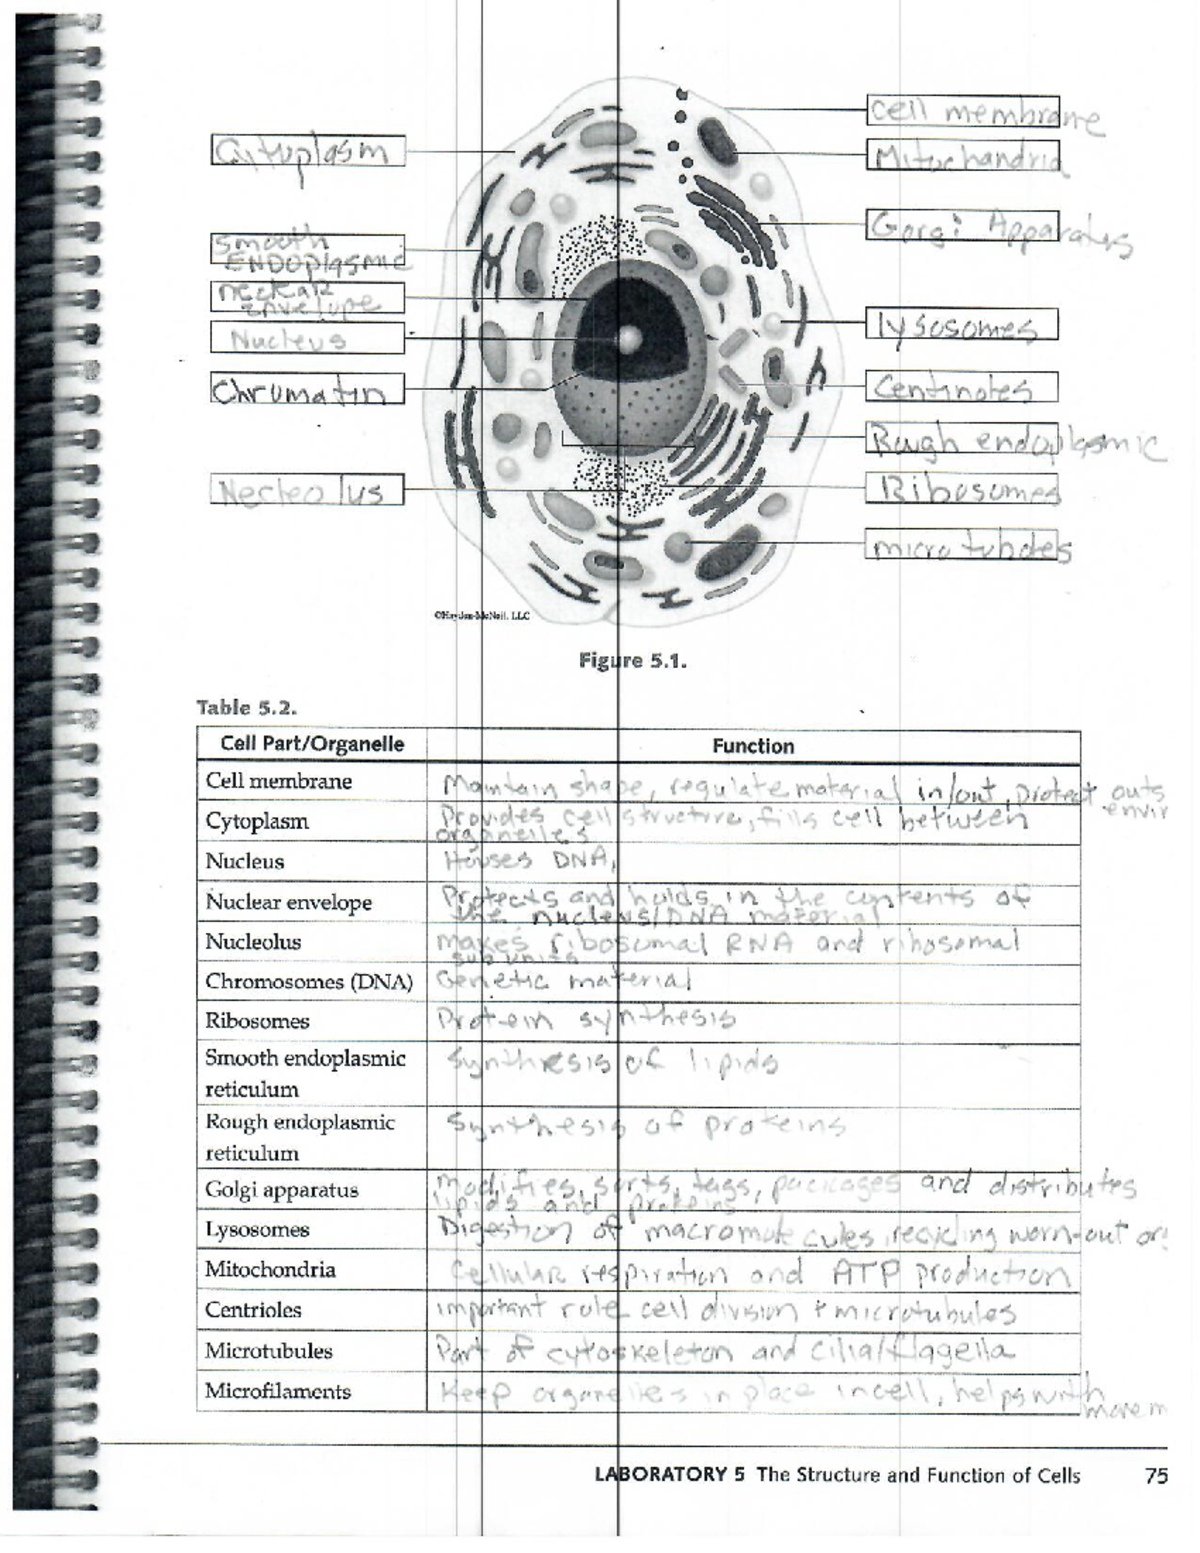 Cytoplasm
smooth
ENDOplasmic
neclear
envelope
Nucleus
Chrumatin
Necleolus
cell membrane
Mitochandria
Gorgi Apparatus
lysosomes
Centinotes
Rough endoplasmic
Ribosomes
micro tubules
©Hayden-McNeil, LLC
Figure 5.1.
Table 5.2.
Cell Part/Organelle Function
Cell membrane Maintain shape, regulate material in/out, protect outs
envir
Cytoplasm Provides cell structure, fills cell between
organelles
Nucleus Houses DNA,
Nuclear envelope Protects and holds in the contents of
the nucleus/DNA material
Nucleolus makes ribosomal RNA and ribosomal
sub units
Chromosomes (DNA) Genetic material
Ribosomes Protein synthesis
Smooth endoplasmic synthesis of lipids
reticulum
Rough endoplasmic synthesis of proteins
reticulum
Golgi apparatus modifies, sorts, tags, packages and distributes
lipids and proteins
Lysosomes Digestion of macromolecules, recycling worn-out or
Mitochondria cellular respiration and ATP production
Centrioles important role cell division + microtubules
Microtubules Part of cytoskeleton and cilia/flagella
Microfilaments Keep organelles in place in cell, helps with
movem
LABORATORY 5 The Structure and Function of Cells 75